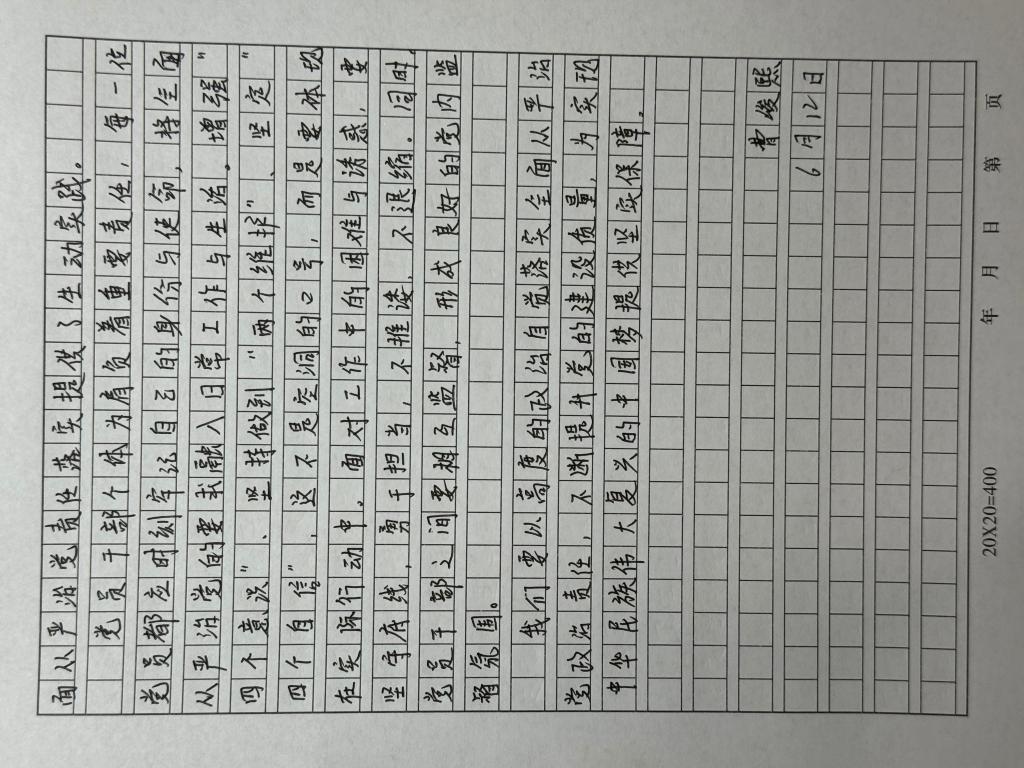 面从严治党责任落实提供了生动实践。
党员干部个体为肩负着重要责任，每一位
党员都应时刻牢记自己的身份与使命，将全面
从严治党的要求融入日常工作与生活。增强"
四个意识"、坚持做到"两个维护"、坚定"
四个自信"，这不是空洞的口号，而是要体现
在实际行动中。面对工作中的困难与诱惑，要
坚守底线，勇于担当，不推诿、不退缩。同时，
党员干部之间要相互监督，形成良好的党内监
督氛围。
我们要以高度的政治自觉落实全面从严治
党政治责任，不断提升党的建设质量，为实现
中华民族伟大复兴的中国梦提供坚实保障。
曹俊熙
6月12日
20X20=400 年 月 日 第 页